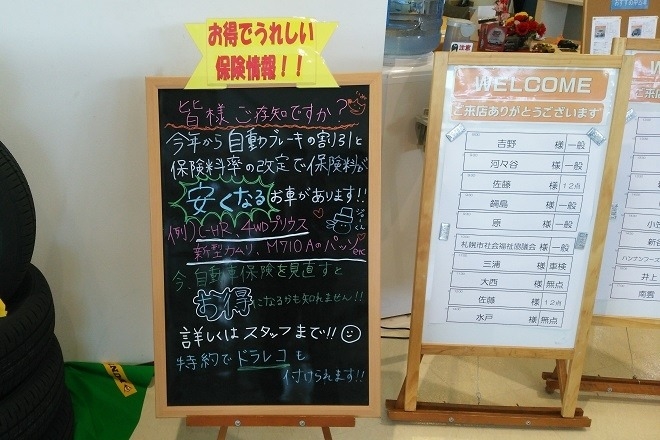 お得でうれしい
保険情報！！
皆様ご存知ですか？
今年から自動ブレーキの割引と
保険料率の改定で保険料が
安くなるお車があります!!
例)C-HR、4WDプリウス
新型カムリ、M710Aのパッソetc
今、自動車保険を見直すと
お得になるかも知れません!!
詳しくはスタッフまで!!
特約でドラレコも
付けられます!!
WELCOME
ご来店ありがとうございます
吉野 様 一般
河々谷 様 一般
佐藤 様 12点
鍋島 様 一般
原 様 一般
札幌市社会福祉協議会 様 一般
三浦 様 車検
大西 様 無点
佐藤 様 12点
水戸 様 無点
井上
南雲